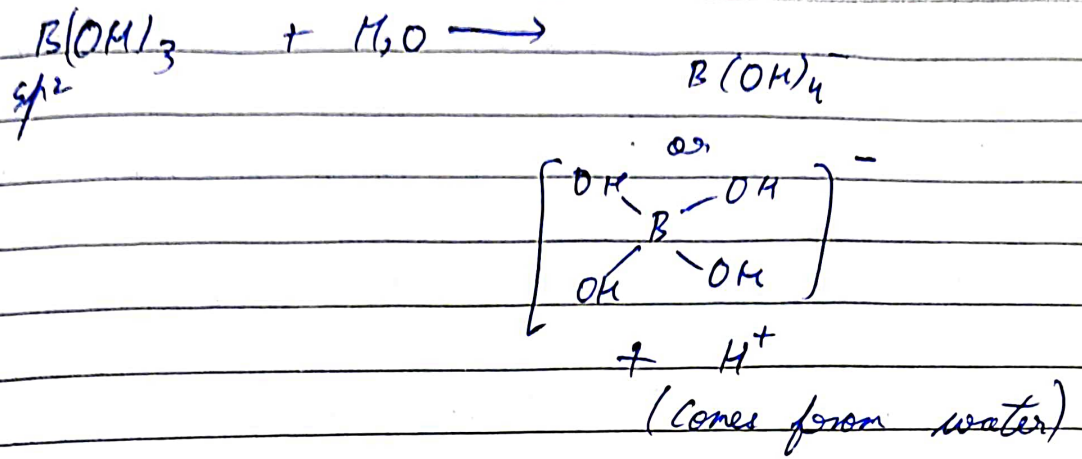 B(OH)3 + H2O ⟶
sp2
B(OH)4-
or
[OH OH
B
OH OH]-
+ H+
(comes from water)